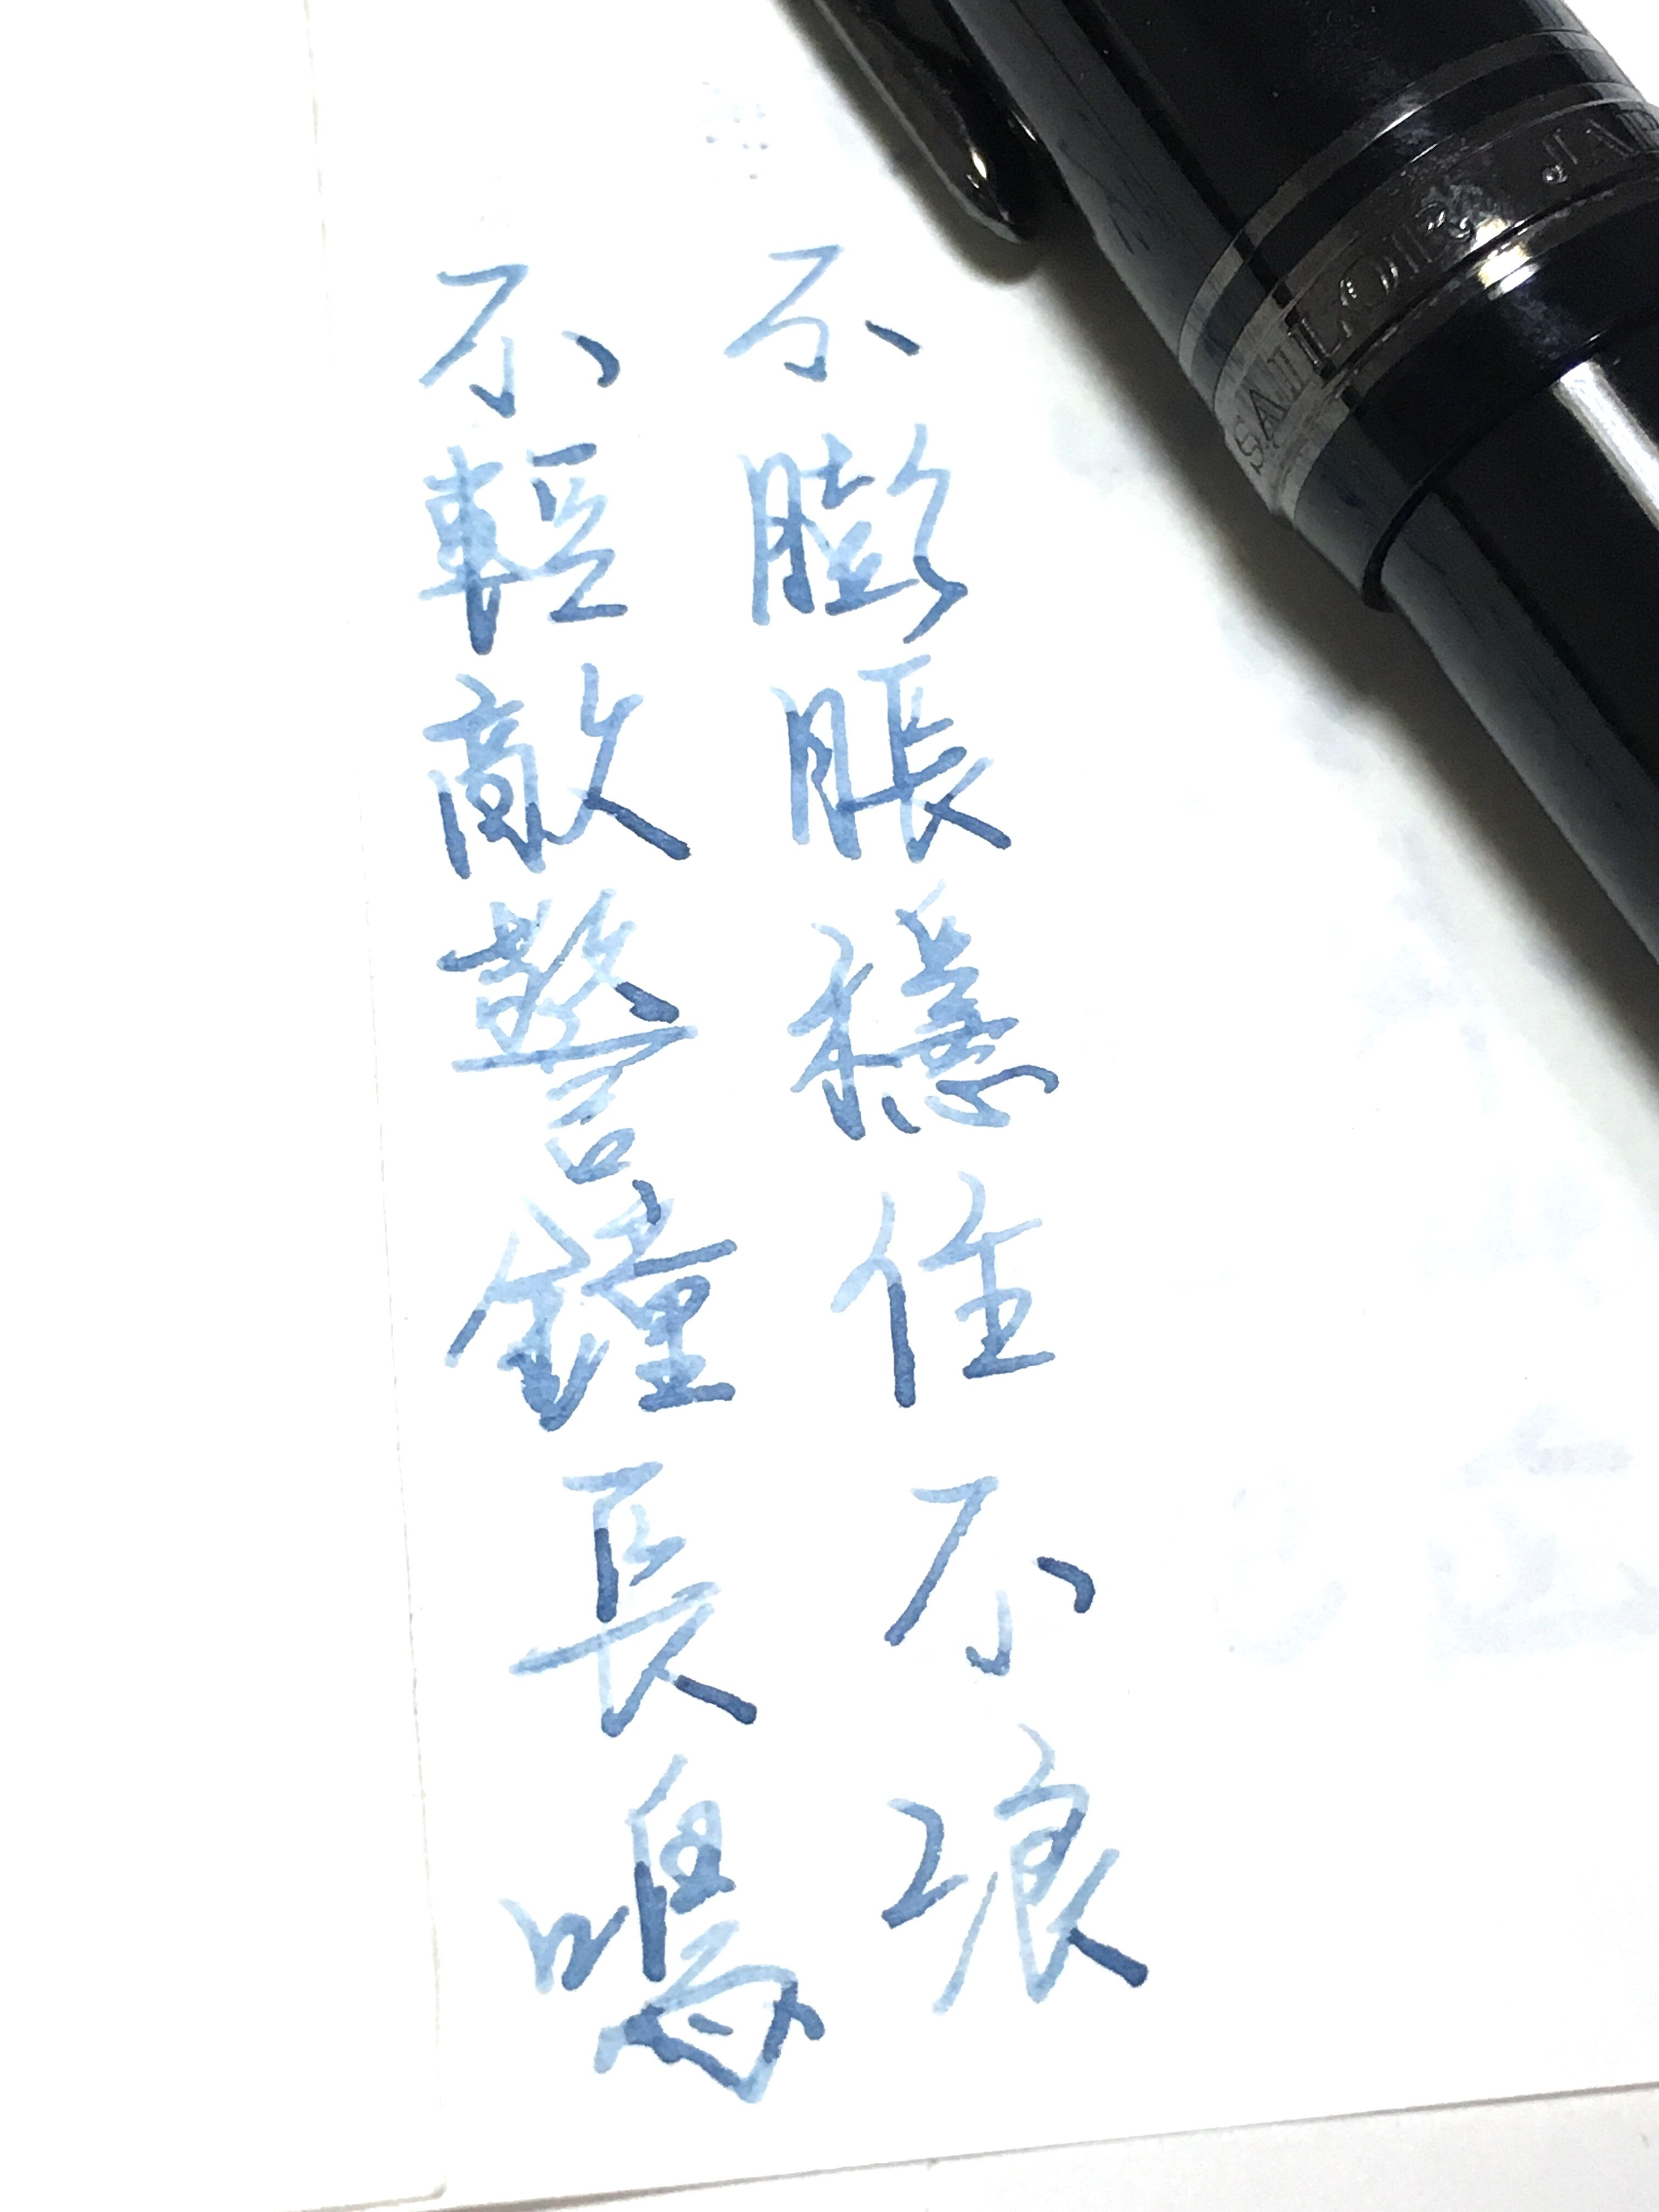 不膨脹穩住不浪
不輕敵警鐘長鳴
SAILOR JAP